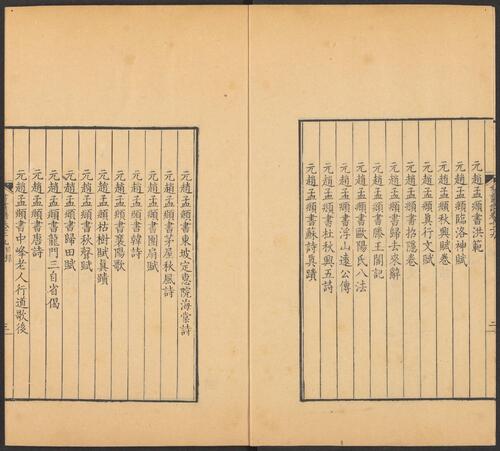 元趙孟頫書洪範
元趙孟頫臨洛神賦
元趙孟頫秋興賦卷
元趙孟頫真行文賦
元趙孟頫書招隱卷
元趙孟頫書歸去來辭
元趙孟頫書滕王閣記
元趙孟頫書歐陽氏八法
元趙孟頫書杜秋興五詩
元趙孟頫書浮山遠公傳
元趙孟頫書蘇詩真蹟
二
元趙孟頫書東坡定惠院海棠詩
元趙孟頫書茅屋秋風詩
元趙孟頫書團扇賦
元趙孟頫書韓詩
元趙孟頫書襄陽歌
元趙孟頫枯樹賦真蹟
元趙孟頫書秋聲賦
元趙孟頫書歸田賦
元趙孟頫書龍門三自省偈
元趙孟頫書唐詩
元趙孟頫書中峰老人行道歌後
三